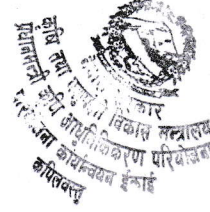 नेपाल सरकार
कृषि तथा पशुपन्छी विकास मन्त्रालय
प्रधानमन्त्री कृषि आधुनिकीकरण परियोजना
परियोजना कार्यान्वयन ईकाई
कपिलवस्तु